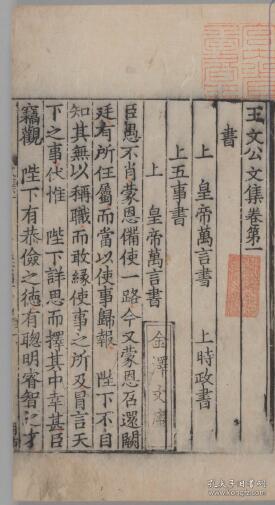 王文公文集卷第一
書
上 皇帝萬言書 上時政書
上五事書
上 皇帝萬言書
金澤文庫
臣愚不肖蒙恩備使一路今又蒙恩召還闕
廷有所任屬而當以使事歸報 陛下不自
知其無以稱職而敢緣使事之所及冒言天
下之事伏惟 陛下詳思而擇其中幸甚臣
竊觀 陛下有恭儉之德有聰明睿智之才
孔夫子旧书网